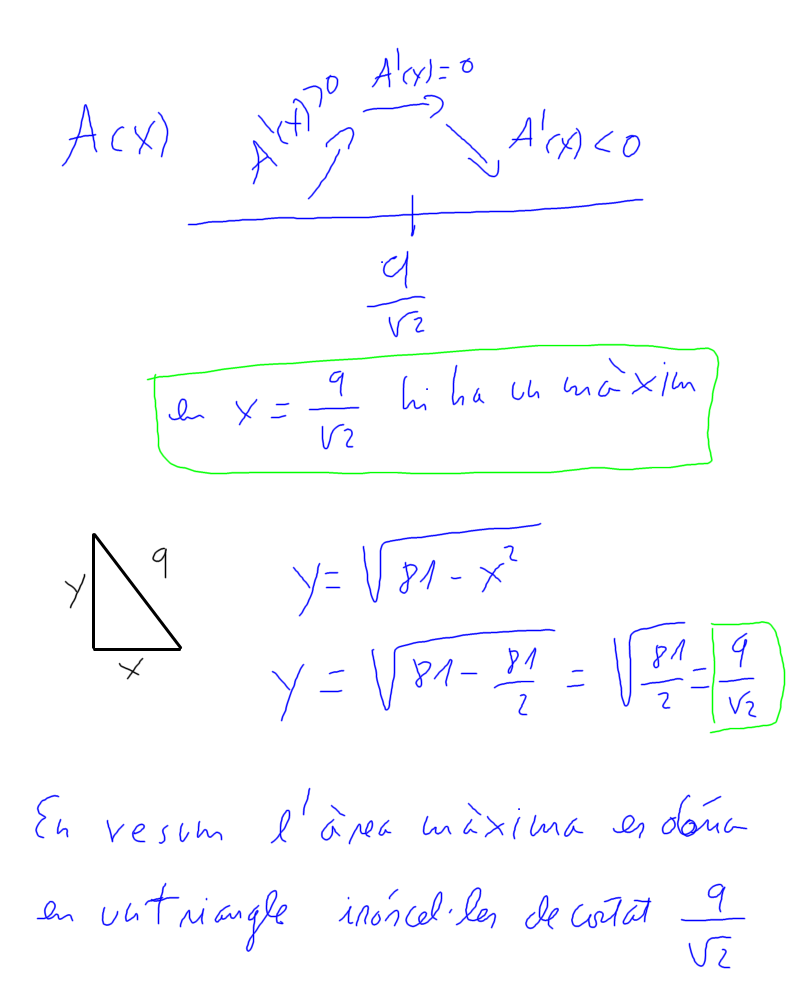 A(x) A'(x)>0 A'(x)=0 A'(x)<0
9/√2
en x = 9/√2 hi ha un màxim
y 9 x
y = √(81 - x²)
y = √(81 - 81/2) = √(81/2) = 9/√2
En resum l'àrea màxima es
en un triangle isóscel·les de costat 9/√2